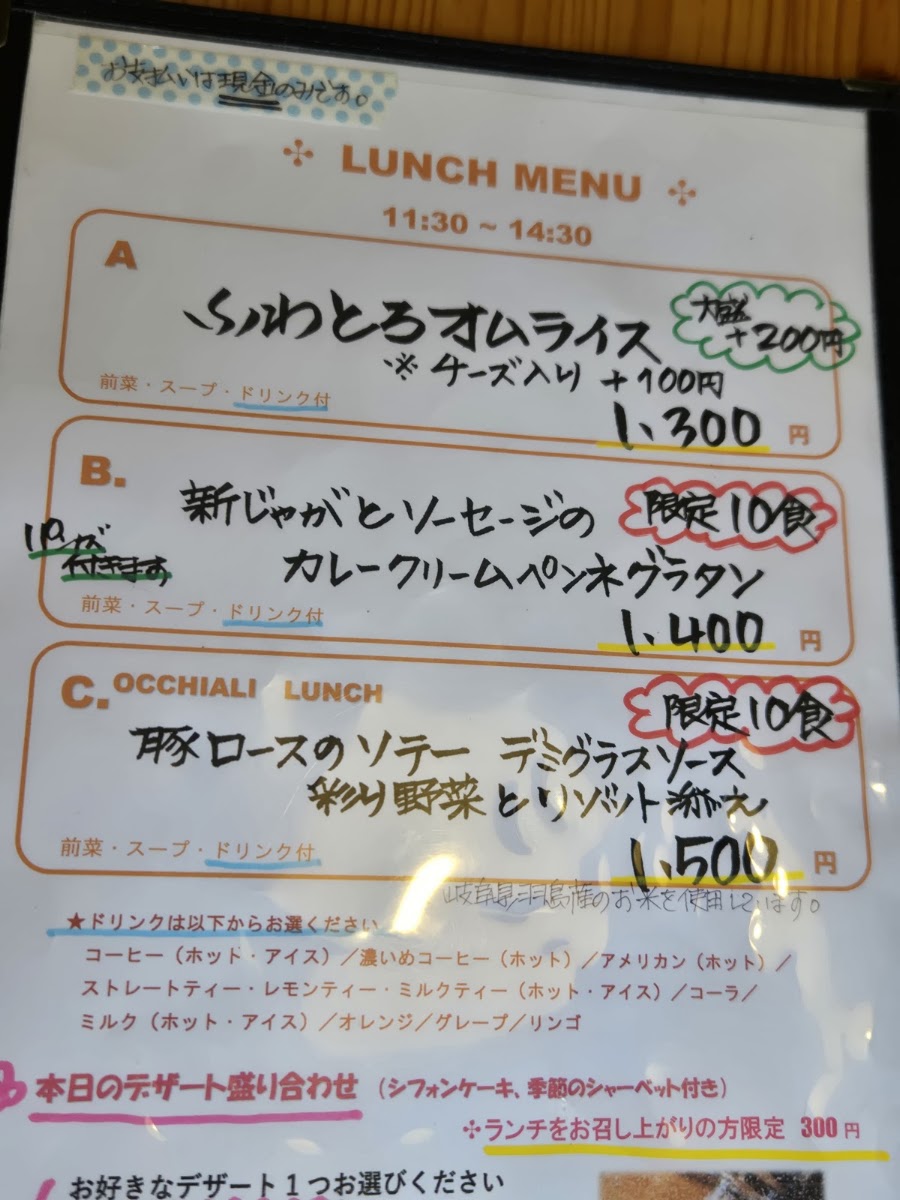 お支払いは現金のみです。
LUNCH MENU
11:30 ~ 14:30
A
ふわとろオムライス
大盛
+200円
※チーズ入り +100円
前菜・スープ・ドリンク付
1,300 円
B.
新じゃがとソーセージの
限定10食
パンが
付きます
カレークリームペンネグラタン
前菜・スープ・ドリンク付
1,400 円
C. OCCHIALI LUNCH
限定10食
豚ロースのソテー デミグラスソース
彩り野菜とリゾット添え
前菜・スープ・ドリンク付
1,500 円
岐阜県羽島産のお米を使用しています。
★ドリンクは以下からお選ください
コーヒー（ホット・アイス）／濃いめコーヒー（ホット）／アメリカン（ホット）／
ストレートティー・レモンティー・ミルクティー（ホット・アイス）／コーラ／
ミルク（ホット・アイス）／オレンジ／グレープ／リンゴ
本日のデザート盛り合わせ （シフォンケーキ、季節のシャーベット付き）
ランチをお召し上がりの方限定 300円
お好きなデザート1つお選びください